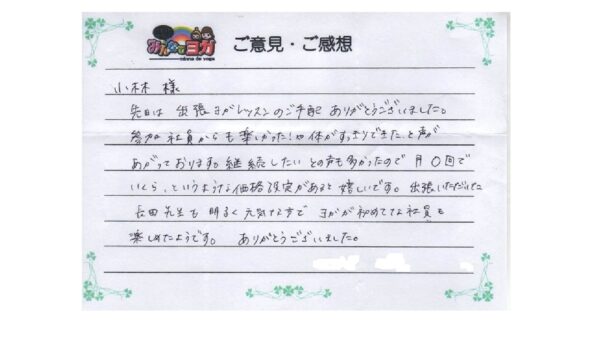 みんなでヨガ
minna de yoga
ご意見・ご感想
小林 様
先日は 出張ヨガレッスンのご手配 ありがとうございました。
参加社員からも楽しかった!や体がすっきりできた、と声が
あがっております。継続したい との声も多かったので 月〇回で
いくら、というような価格設定があると嬉しいです。出張いただいた
長田先生も 明るく元気な方で ヨガが初めてな社員も
楽しめたようです。 ありがとうございました。